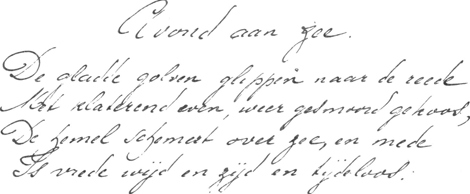 Avond aan zee.
De gladde golven glippen naar de reede
Met klaterend even, weer gesmoord gekoos,
De hemel schemert over zee, en mede
Is vrede wijd en zijd en tijdeloos.